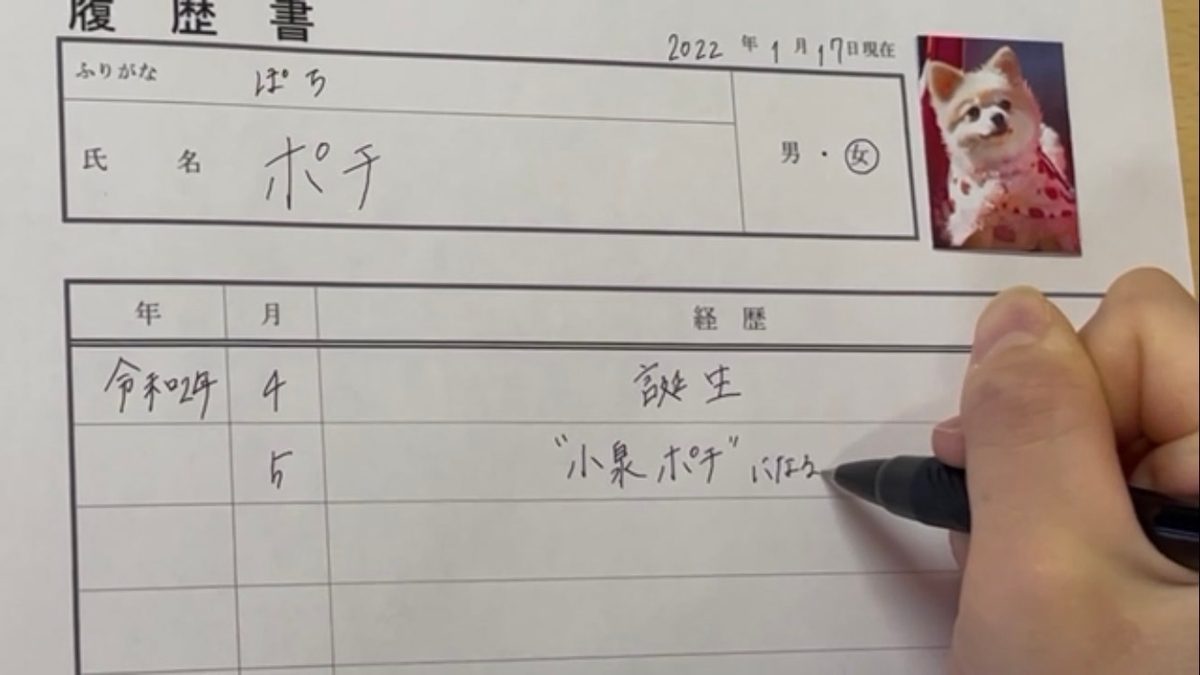 履歴書
2022年1月17日現在
ふりがな ぽち
氏名 ポチ 男・女
年 月 経歴
令和2年 4 誕生
5 "小泉ポチ"になる